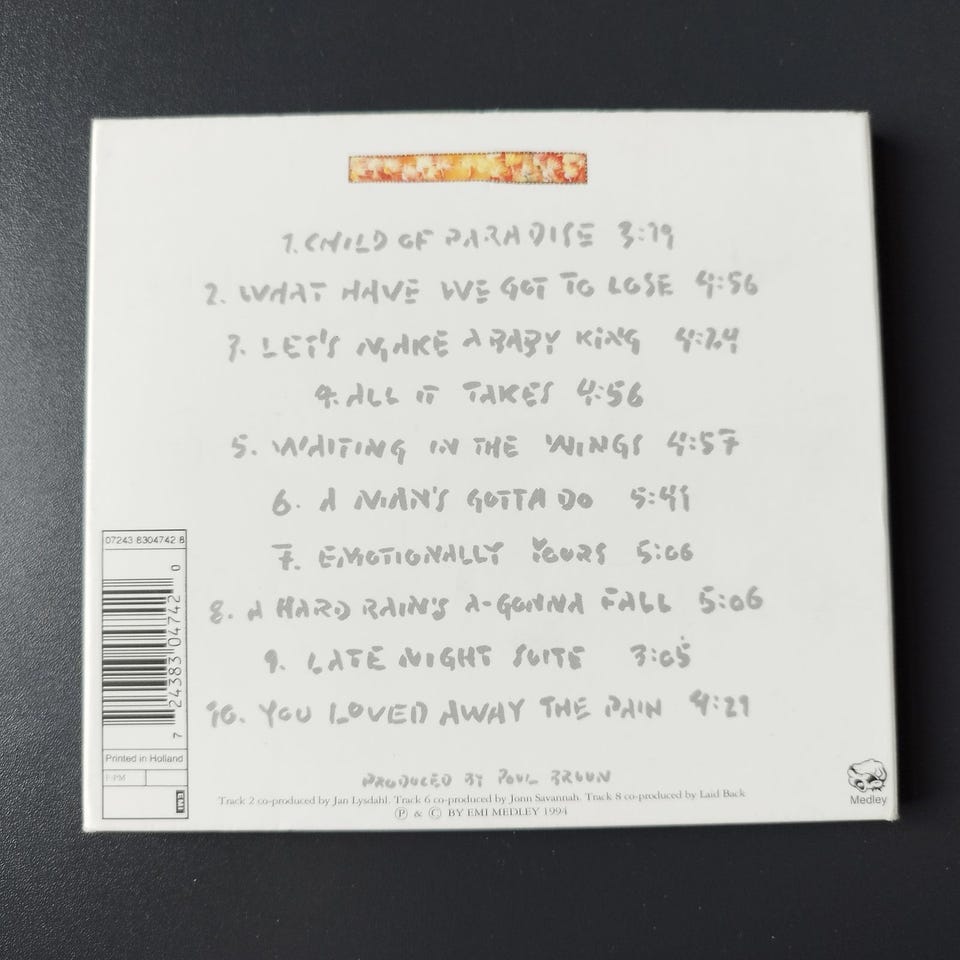 1. CHILD OF PARADISE 3:19
2. WHAT HAVE WE GOT TO LOSE 4:56
3. LET'S MAKE A BABY KING 4:24
4. ALL IT TAKES 4:56
5. WAITING IN THE WINGS 4:57
6. A MAN'S GOTTA DO 5:41
7. EMOTIONALLY YOURS 5:06
8. A HARD RAIN'S A-GONNA FALL 5:06
9. LATE NIGHT SUITE 3:05
10. YOU LOVED AWAY THE PAIN 4:29
PRODUCED BY POUL BRUUN
Track 2 co-produced by Jan Lysdahl. Track 6 co-produced by Jonn Savannah. Track 8 co-produced by Laid Back
Ⓟ & © BY EMI MEDLEY 1994
07243 8304742 8
7 24383 04742 0
Printed in Holland
F:PM
EMI
Medley